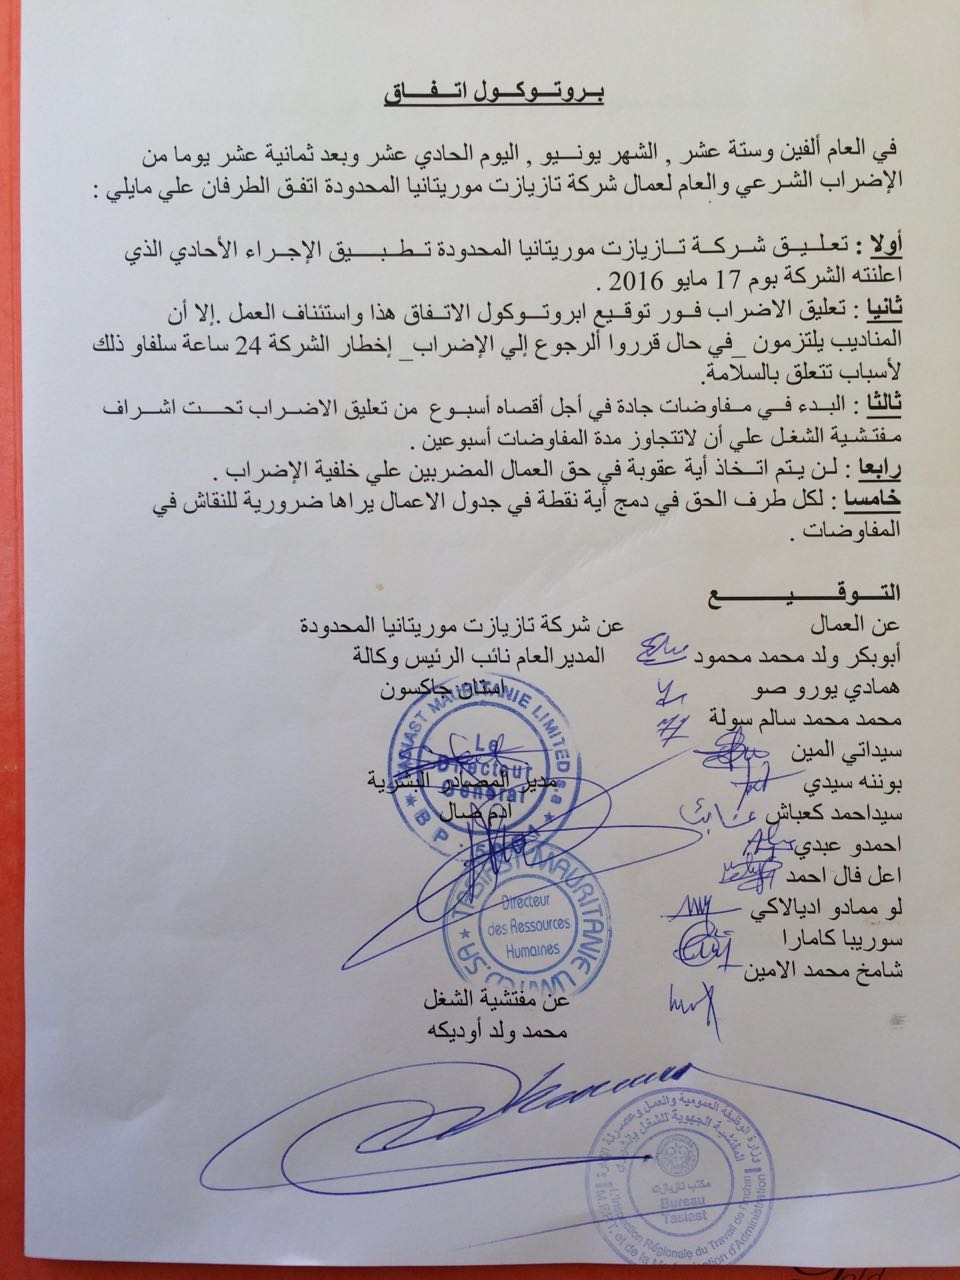 بروتوكول اتفاق
في العام ألفين وستة عشر , الشهر يونيو , اليوم الحادي عشر وبعد ثمانية عشر يوما من
الإضراب الشرعي والعام لعمال شركة تازيازت موريتانيا المحدودة اتفق الطرفان علي مايلي :
أولا : تعليق شركة تازيازت موريتانيا المحدودة تطبيق الإجراء الأحادي الذي
اعلنته الشركة يوم 17 مايو 2016 .
ثانيا : تعليق الاضراب فور توقيع ابروتوكول الاتفاق هذا واستئناف العمل .إلا أن
المناديب يلتزمون _في حال قرروا ألرجوع إلي الإضراب_ إخطار الشركة 24 ساعة سلفاو ذلك
لأسباب تتعلق بالسلامة.
ثالثا : البدء في مفاوضات جادة في أجل أقصاه أسبوع من تعليق الاضراب تحت اشراف
مفتشية الشغل علي أن لاتتجاوز مدة المفاوضات أسبوعين .
رابعا : لن يتم اتخاذ أية عقوبة في حق العمال المضربين علي خلفية الإضراب .
خامسا : لكل طرف الحق في دمج أية نقطة في جدول الاعمال يراها ضرورية للنقاش في
المفاوضات .
التوقيع
عن العمال عن شركة تازيازت موريتانيا المحدودة
أبوبكر ولد محمد محمود المديرالعام نائب الرئيس وكالة
همادي يورو صو استان جاكسون
محمد محمد سالم سولة
سيداتي المين
بوننه سيدي مدير المصادر البشرية
سيداحمد كعباش ادم ضال
احمدو عبدي
اعل فال احمد
لو ممادو اديالاكي
سوريبا كامارا
شامخ محمد الامين
TASIAST MAURITANIE LIMITED s.a
Le
Directeur
General
B P
TASIAST MAURITANIE LIMITED.SA
Directeur
des Ressources
Humaines
عن مفتشية الشغل
محمد ولد أوديكه
وزارة الوظيفة العمومية والعمل وعصرنة الإدارة
المفتشية الجهوية للشغل
مكتب تازيازت
Bureau
Tasiast
L'Inspection Régionale du Travail